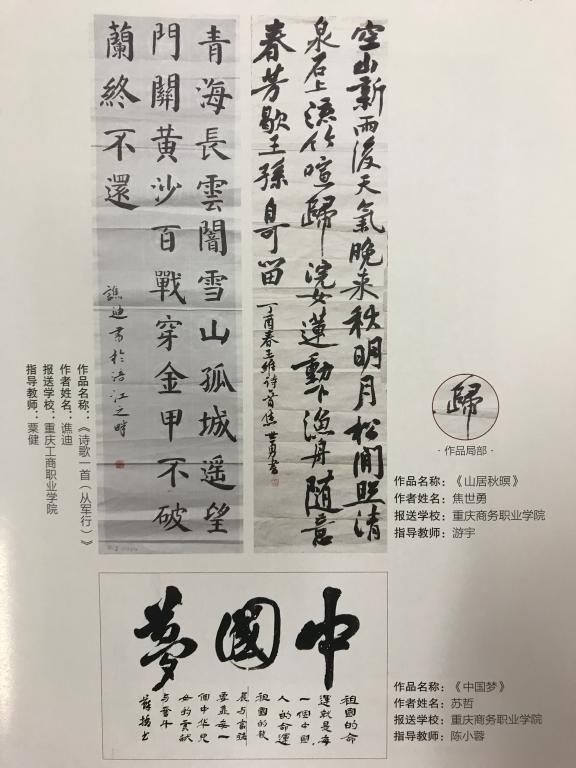 空山新雨後天氣晚来秋明月松間照清
泉石上流竹喧歸浣女蓮動下漁舟隨意
春芳歇王孫自可留
丁酉春王維詩首焦世勇書
青海長雲闇雪山孤城遥望
門關黄沙百戰穿金甲不破
蘭終不還
譙迪書於涪江之畔
作品名称：《诗歌一首（从军行）》
作者姓名：谯迪
报送学校：重庆工商职业学院
指导教师：栗健
歸
·作品局部·
作品名称：《山居秋暝》
作者姓名：焦世勇
报送学校：重庆商务职业学院
指导教师：游宇
中國夢
祖國的命
運就是每
一個中國
人的命運
祖國的發
展与富強
要靠每一
個中华兒
女的貢献
与奮斗
作品名称：《中国梦》
作者姓名：苏哲
报送学校：重庆商务职业学院
指导教师：陈小蓉